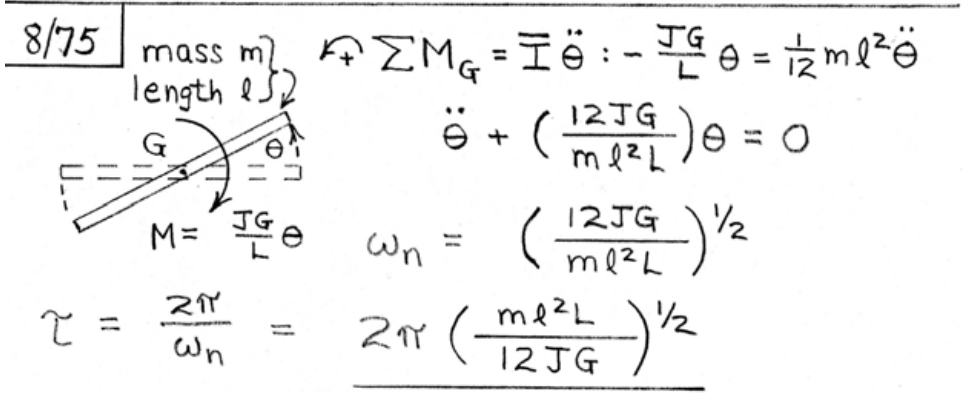 8/75
mass m
length l
↶+ ΣM_G = I̅ θ̈ : - JG/L θ = 1/12 ml²θ̈
θ̈ + (12JG/ml²L)θ = 0
G
θ
M= JG/L θ
ω_n = (12JG/ml²L)^1/2
τ = 2π/ω_n = 2π (ml²L/12JG)^1/2